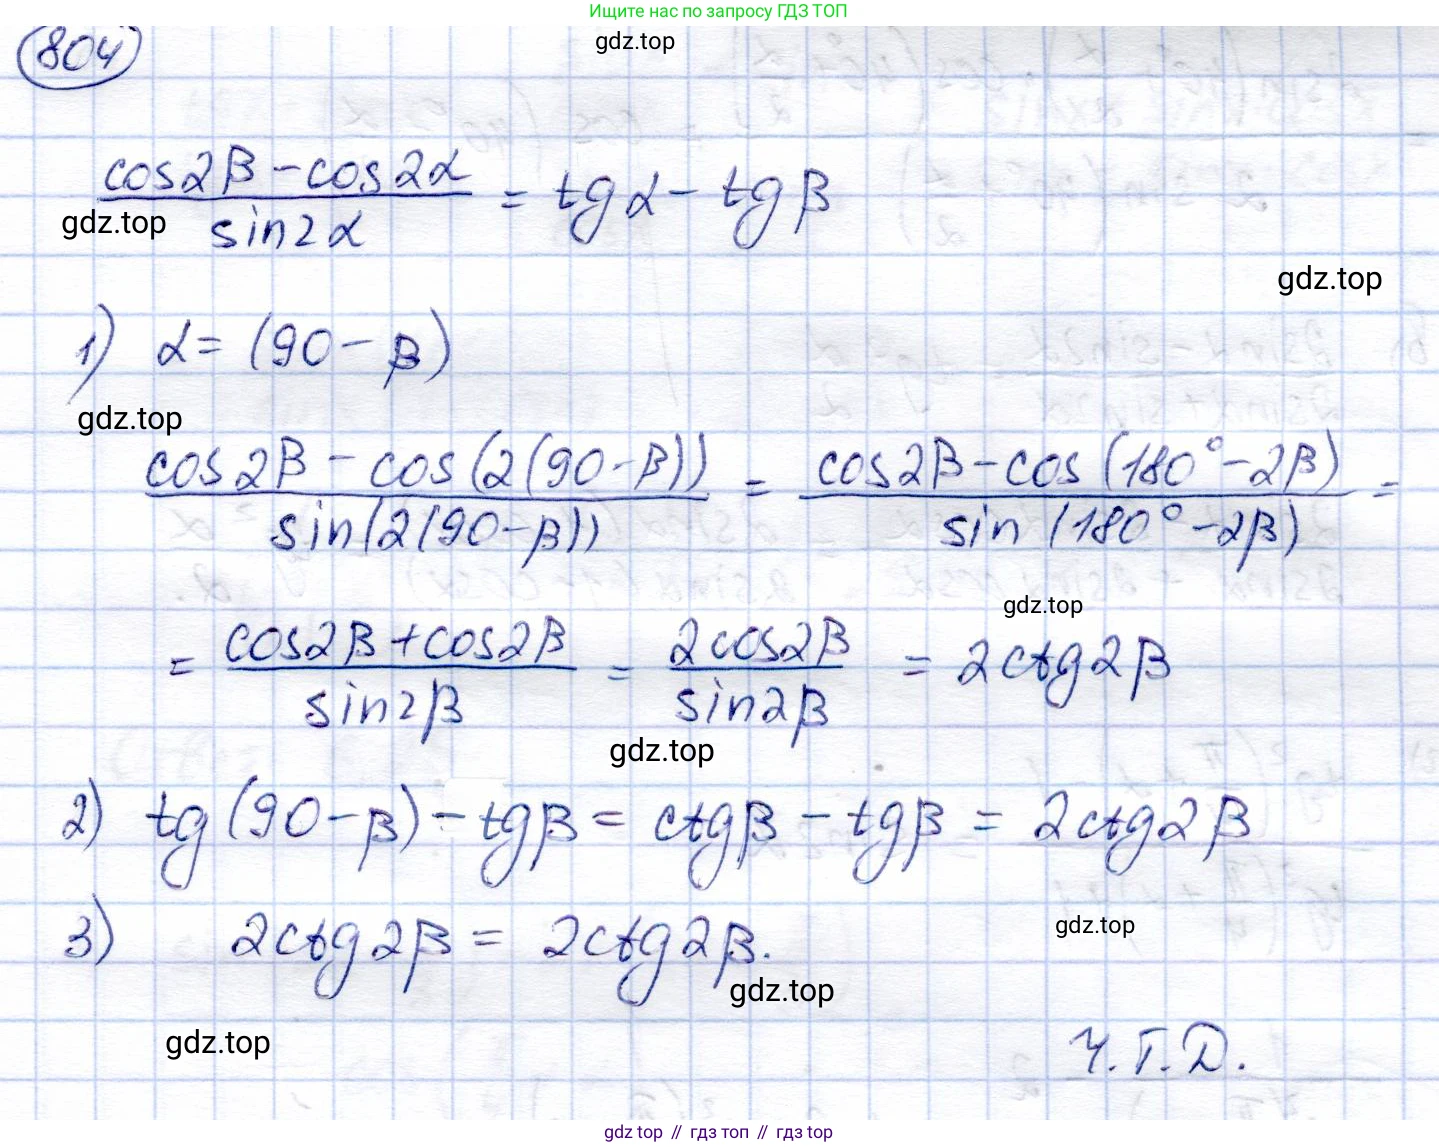 Ищите нас по запросу ГДЗ ТОП
804
gdz.top
cos2β - cos2α / sin2α = tgα - tgβ
gdz.top
gdz.top
1) α = (90 - β)
gdz.top
cos2β - cos(2(90-β)) / sin(2(90-β)) = cos2β - cos(180° - 2β) / sin(180° - 2β) =
gdz.top
= cos2β + cos2β / sin2β = 2cos2β / sin2β = 2ctg2β
gdz.top
2) tg(90-β) - tgβ = ctgβ - tgβ = 2ctg2β
3) 2ctg2β = 2ctg2β.
gdz.top
gdz.top
gdz.top
Ч.Т.Д.
gdz top // гдз топ // гдз top